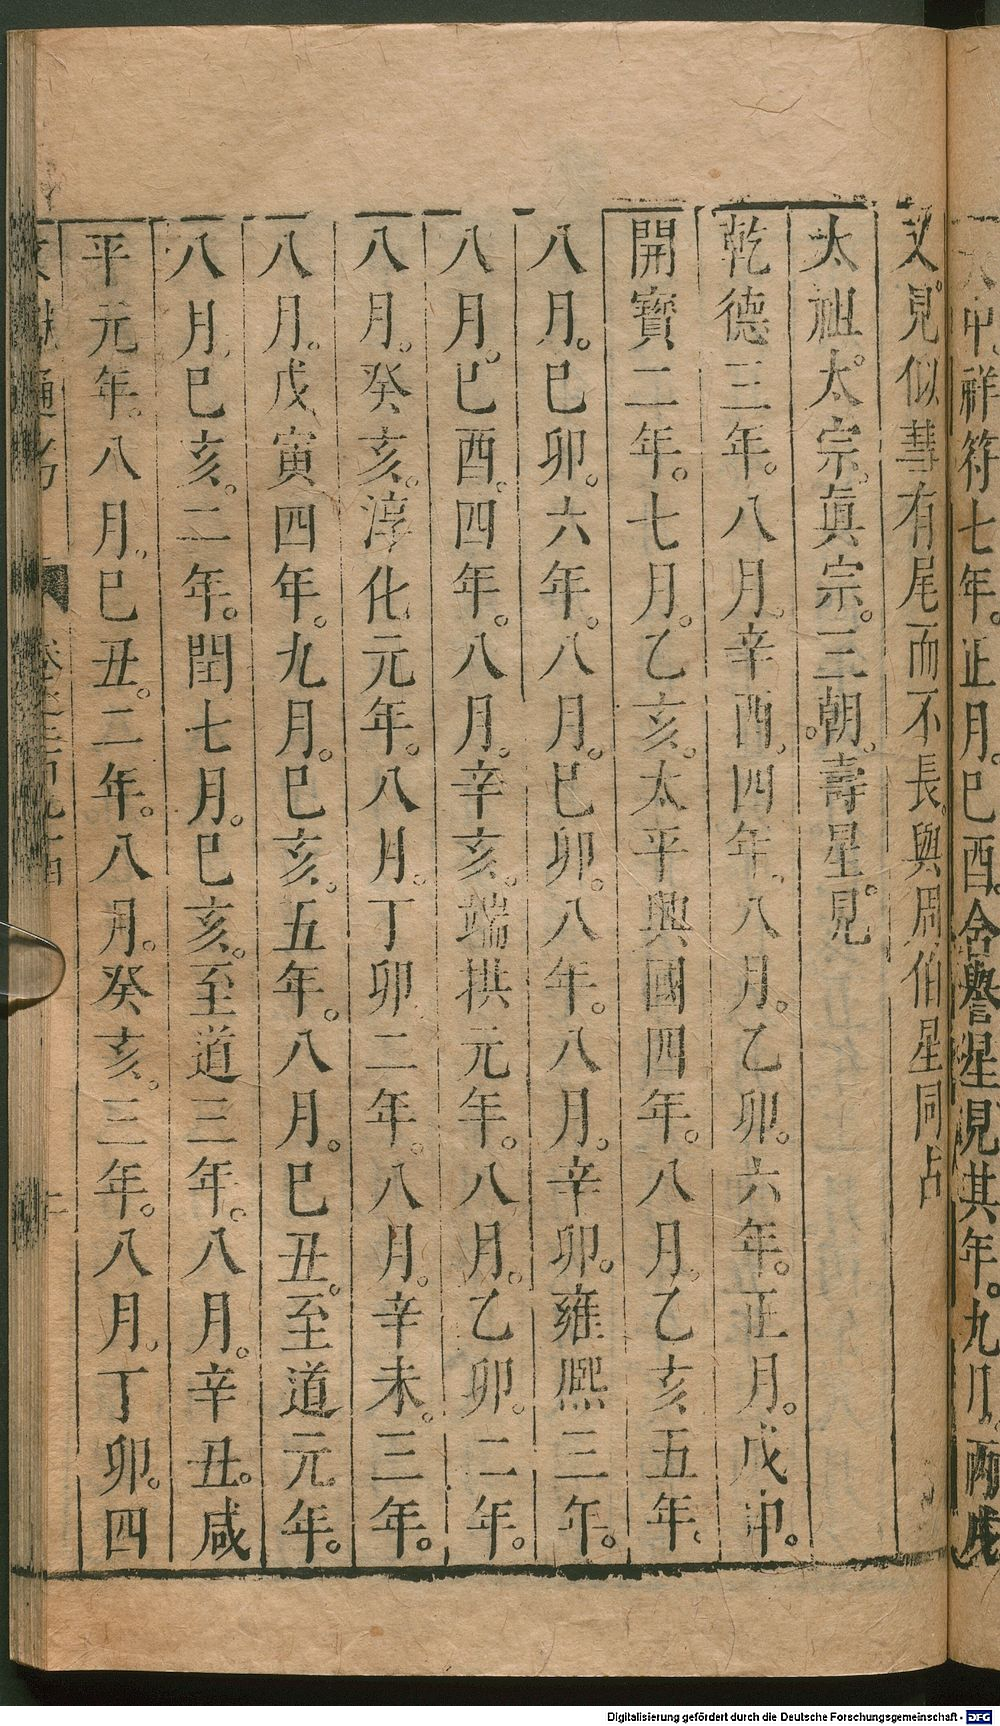 甲。祥符七年。正月。巳酉。含譽星見其年。九月。丙戌
又見。似彗有尾而不長。與周伯星同占
太祖。太宗。眞宗。三朝。壽星。見
乾德三年。八月。辛酉。四年。八月。乙卯。六年。正月。戊申。
開寶二年。七月。乙亥。太平興國四年。八月。乙亥五年。
八月。巳卯。六年。八月。巳卯。八年。八月。辛卯。雍熙三年。
八月。巳酉。四年。八月。辛亥。端拱元年。八月。乙卯。二年。
八月。癸亥。淳化元年。八月。丁卯二年。八月。辛未。三年。
八月。戊寅四年。九月。巳亥。五年。八月。巳丑。至道元年。
八月。巳亥。二年。閏七月。巳亥。至道三年。八月。辛丑。咸
平元年。八月。巳丑。二年。八月。癸亥。三年。八月。丁卯。四
Digitalisierung gefördert durch die Deutsche Forschungsgemeinschaft - DFG